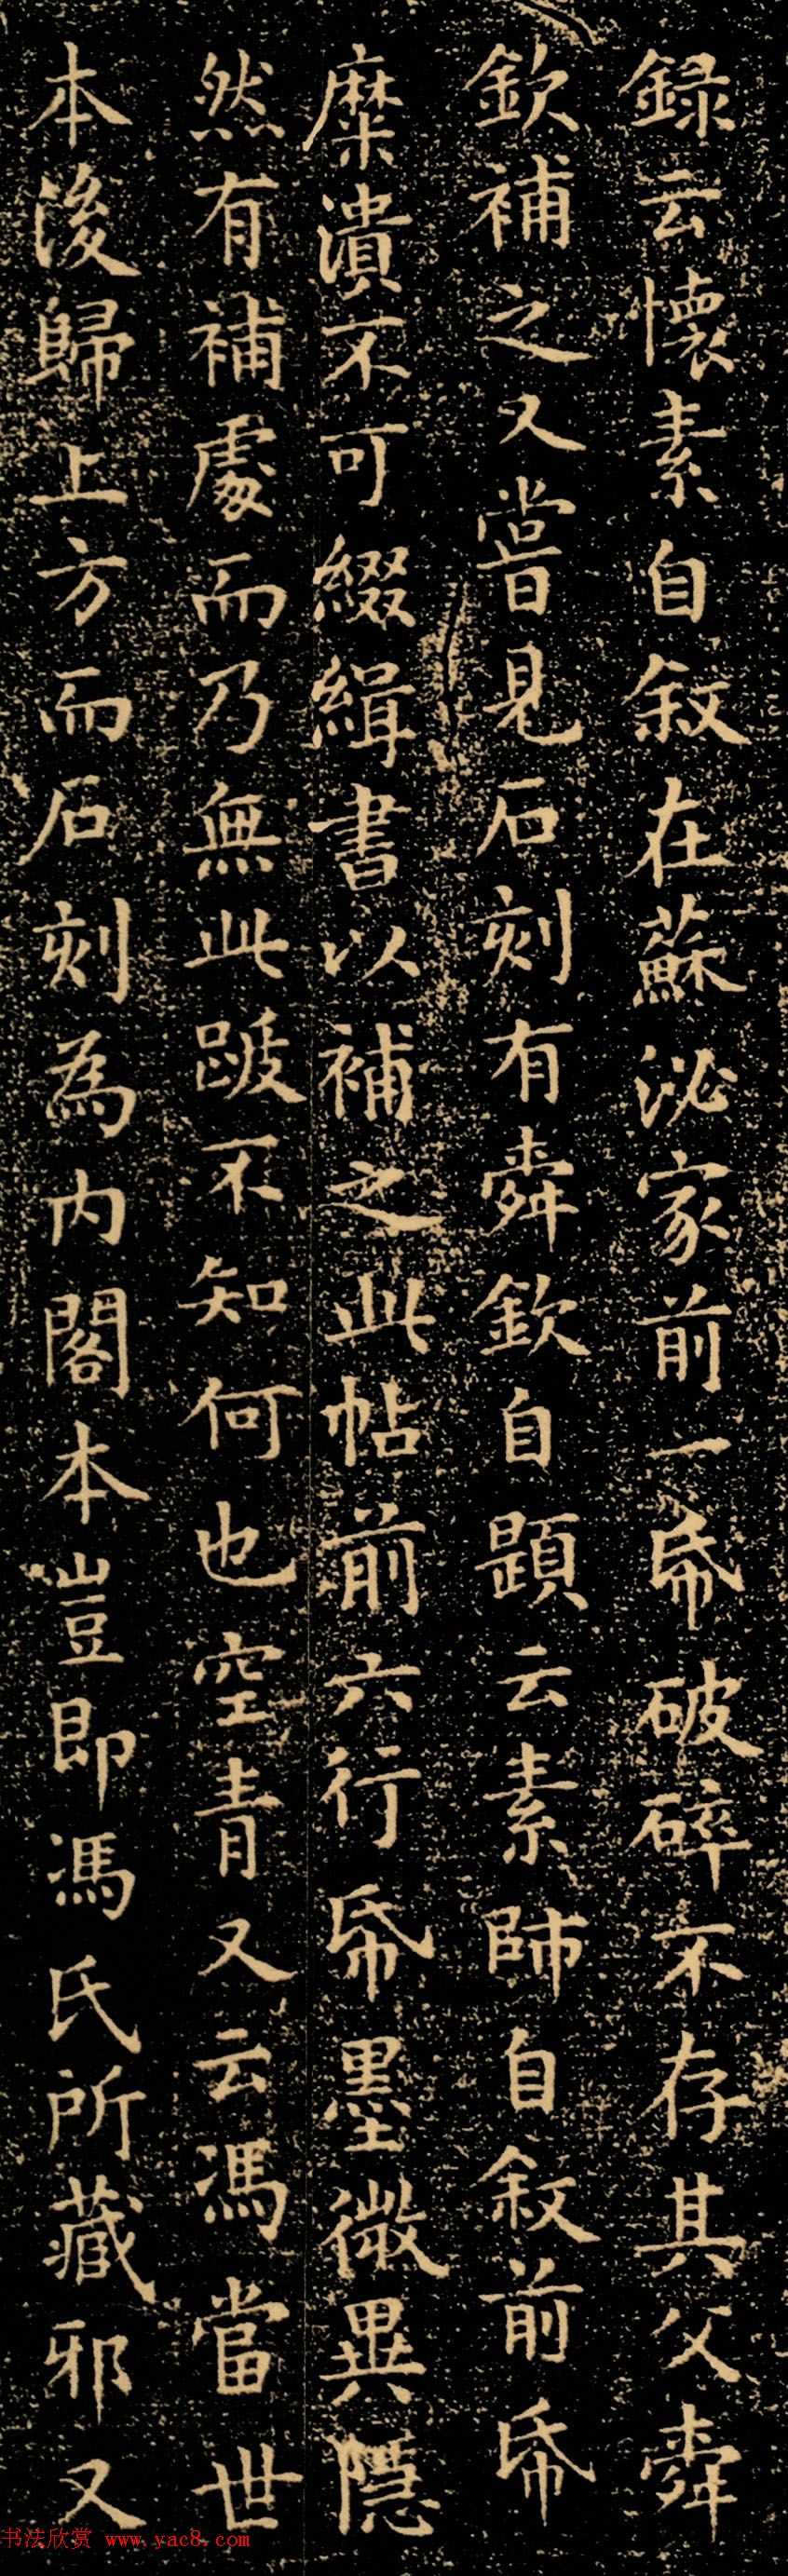 録云懷素自叙在蘇泌家前一帋破碎不存其父舜
欽補之又嘗見石刻有舜欽自題云素師自叙前帋
糜潰不可綴緝書以補之此帖前六行帋墨微異隱
然有補處而乃無此跋不知何也空青又云馮當世
本後歸上方而石刻為内閣本豈即馮氏所藏邪又
书法欣赏 www.yac8.com